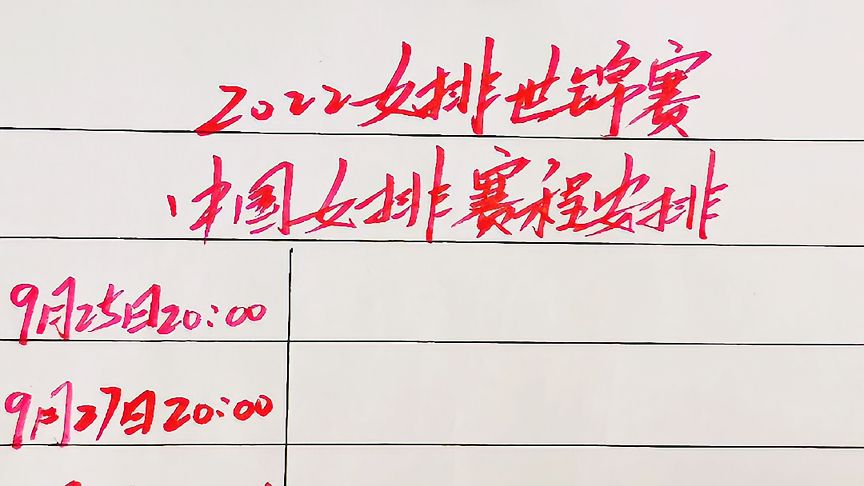 2022女排世锦赛
中国女排赛程安排
9月25日20:00
9月27日20:00